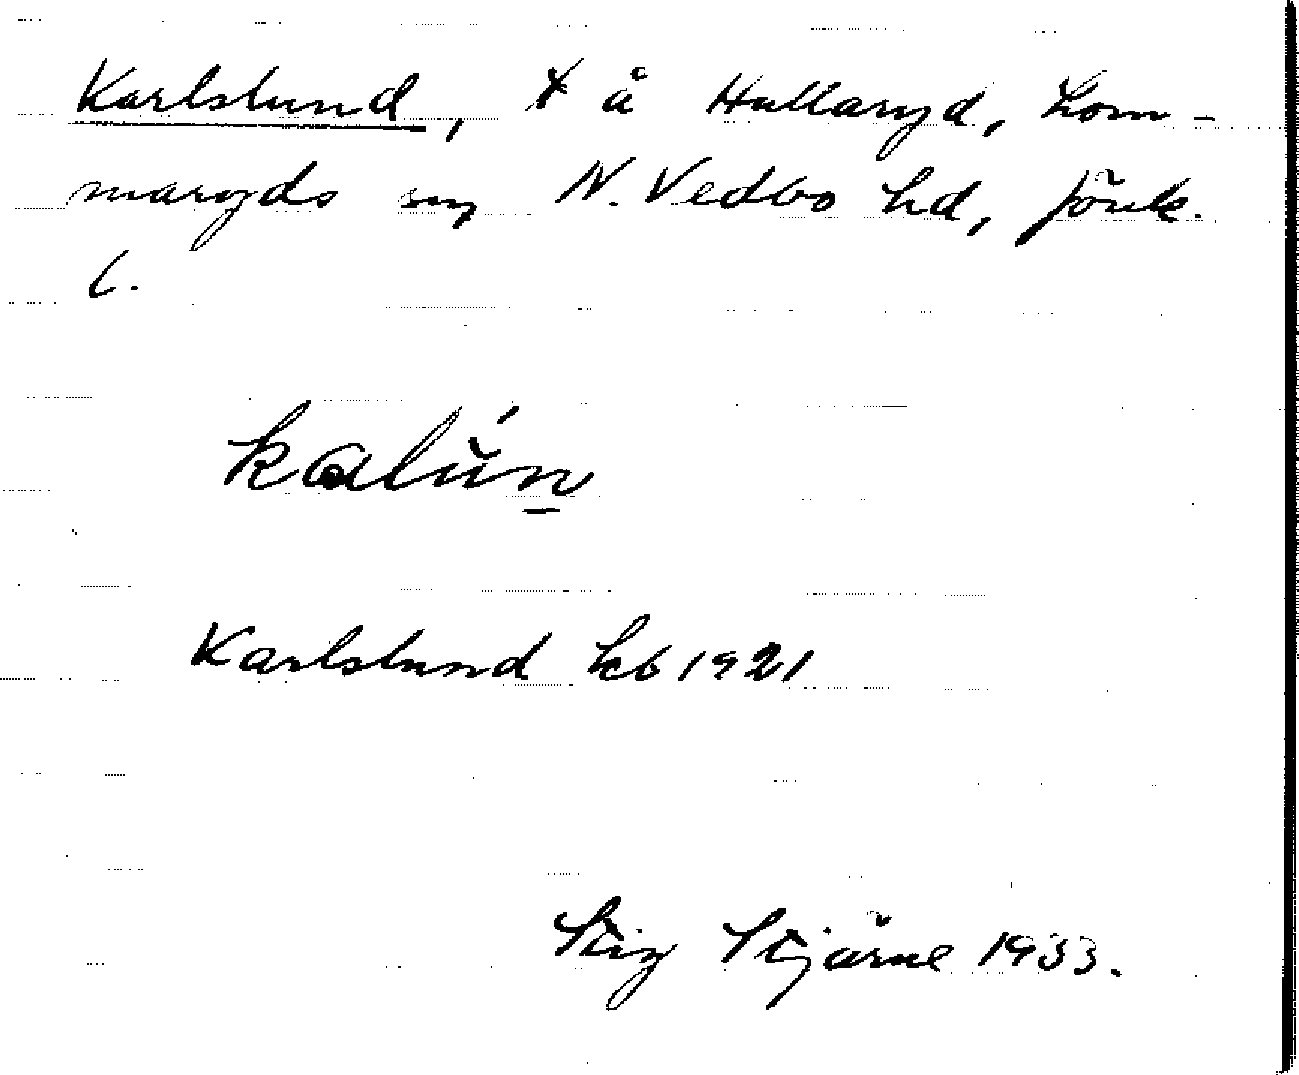 Karlslund, t å Hullaryd, Lom-
maryds sn, N. Vedbo hd, Jönk.
l.
kalún
Karlslund kb 1921
Stig Stjärne 1933.